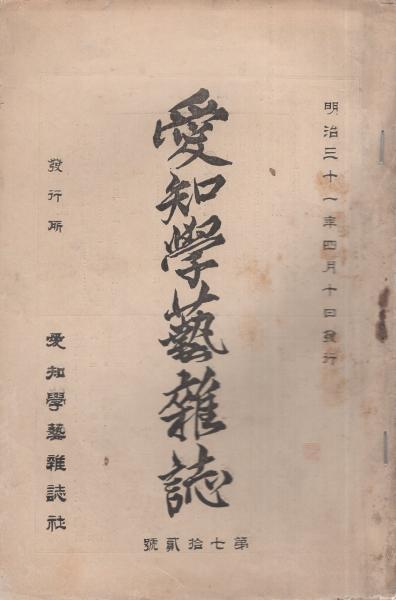 明治三十一年四月十日發行
愛知學藝雜誌
第七拾貳號
發行所
愛知學藝雜誌社